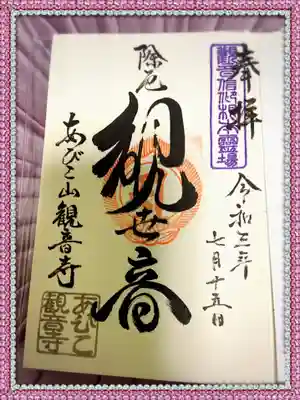 奉拝
觀音信仰根本霊場
令和三年
七月十五日
除厄
観世音
あびこ山観音寺
あびこ
観音寺